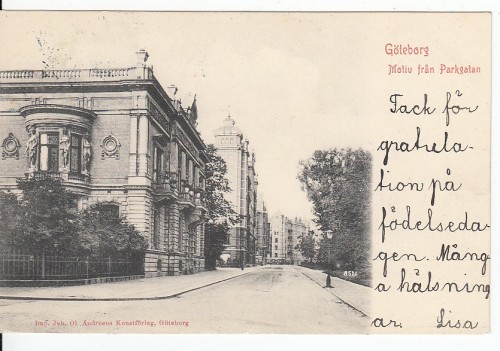 Göteborg
Motiv från Parkgatan
Tack för
gratula-
tion på
födelseda-
gen. Mång
a hälsning
ar. Lisa
Imp. Joh. Ol. Andreens Konstförlag, Göteborg